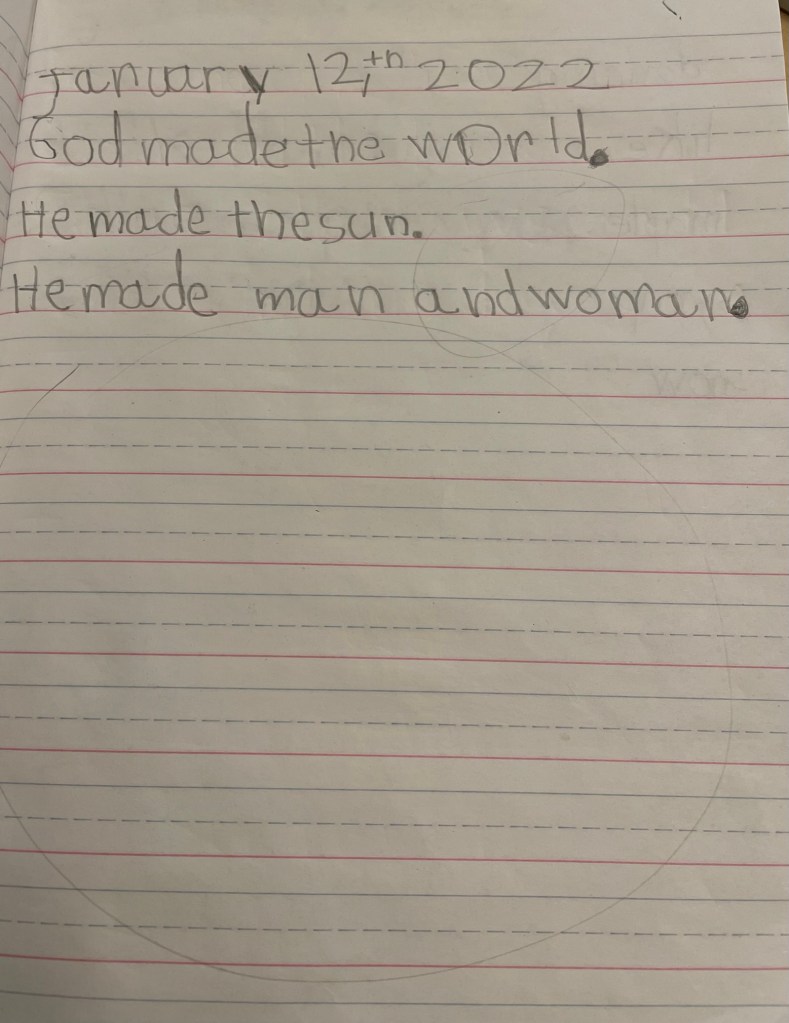 January 12,th 2022
God made the world.
He made the sun.
He made man and woman.